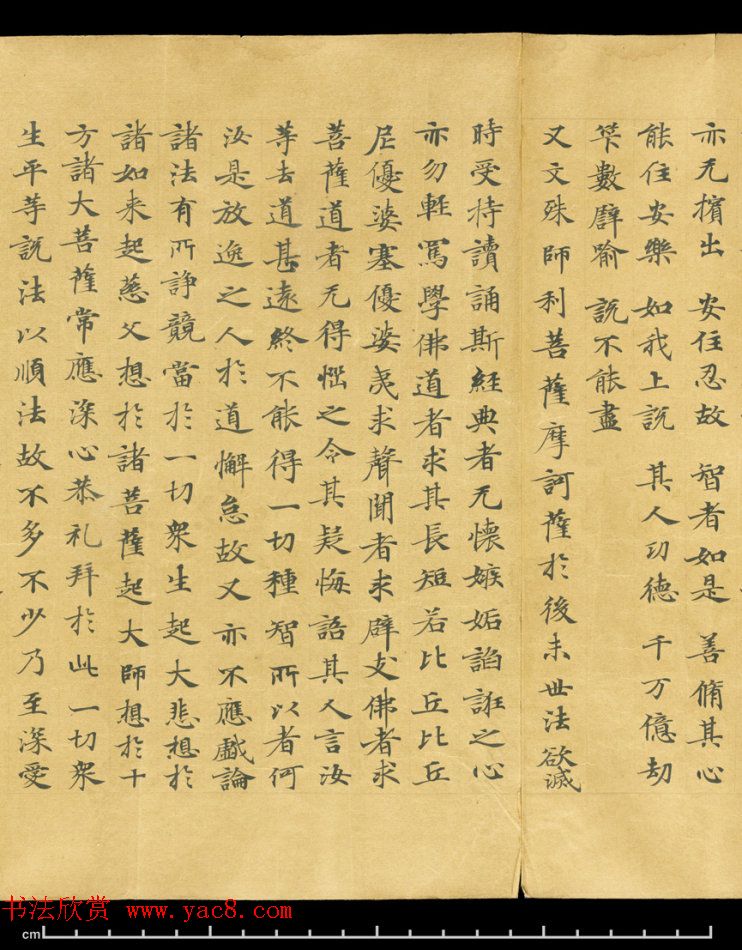 亦无擯出 安住忍故 智者如是 善脩其心
能住安樂 如我上說 其人功德 千万億劫
筭數譬喻 說不能盡
又文殊師利菩薩摩訶薩於後末世法欲滅
時受持讀誦斯經典者无懷嫉妬諂誑之心
亦勿輕罵學佛道者求其長短若比丘比丘
尼優婆塞優婆夷求聲聞者求辟支佛者求
菩薩道者无得惱之令其疑悔語其人言汝
等去道甚遠終不能得一切種智所以者何
汝是放逸之人於道懈怠故又亦不應戲論
諸法有所諍競當於一切衆生起大悲想於
諸如来起慈父想於諸菩薩起大師想於十
方諸大菩薩常應深心恭礼拜於此一切衆
生平等說法以順法故不多不少乃至深愛
书法欣赏 www.yac8.com
cm